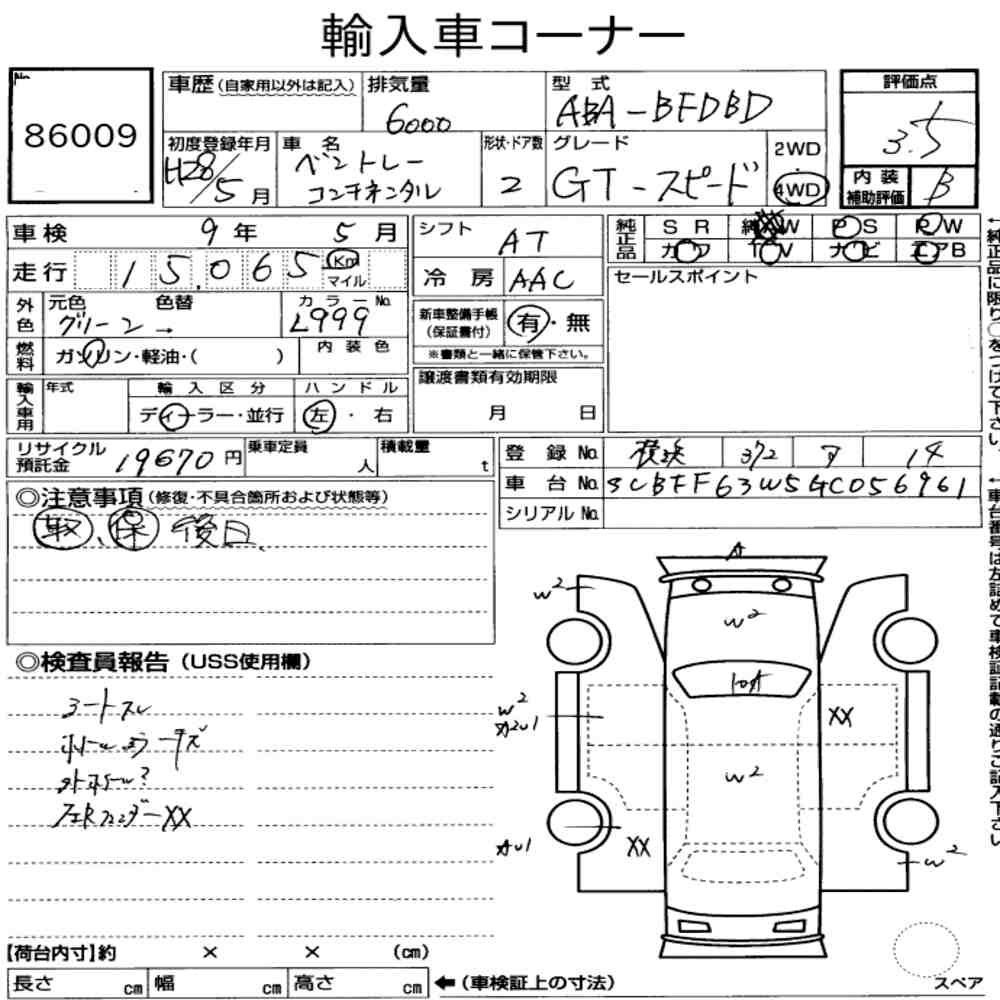 輸入車コーナー
No.
86009
車歴(自家用以外は記入)
排気量
6000
型 式
ABA-BFDBD
評価点
3.5
初度登録年月
H28/5月
車 名
ベントレー
コンチネンタル
形状・ドア数
2
グレード
GT-スピード
2WD
4WD
内装
補助評価
B
車検 9年 5月
シフト AT
純正品
S R
W
P S
P W
カワ
T V
ナビ
エアB
走行 15,065 Km
マイル
冷 房 AAC
セールスポイント
外色
元色
グリーン →
色替
カラーNo.
L999
新車整備手帳
(保証書付)
有・無
※書類と一緒に保管下さい。
燃料
ガソリン・軽油・( )
内 装 色
譲渡書類有効期限
月 日
輸入車用
年式
輸 入 区 分
ディーラー・並行
ハ ン ド ル
左・右
リサイクル
預託金
19670円
乗車定員
人
積載量
t
登 録 No. 横浜 372 14
車 台 No. SCBFF63W5GC056961
シリアルNo.
◎注意事項(修復・不具合箇所および状態等)
取、保 後日、
◎検査員報告(USS使用欄)
XX
【荷台内寸】約 × × (cm)
長さ cm 幅 cm 高さ cm
←(車検証上の寸法)
A
W2
W2
W2
XX
W2
XX
W2
スペア
←純正品に限り○をつけて下さい。
←車台番号は左詰めで車検証記載の通りご記入下さい